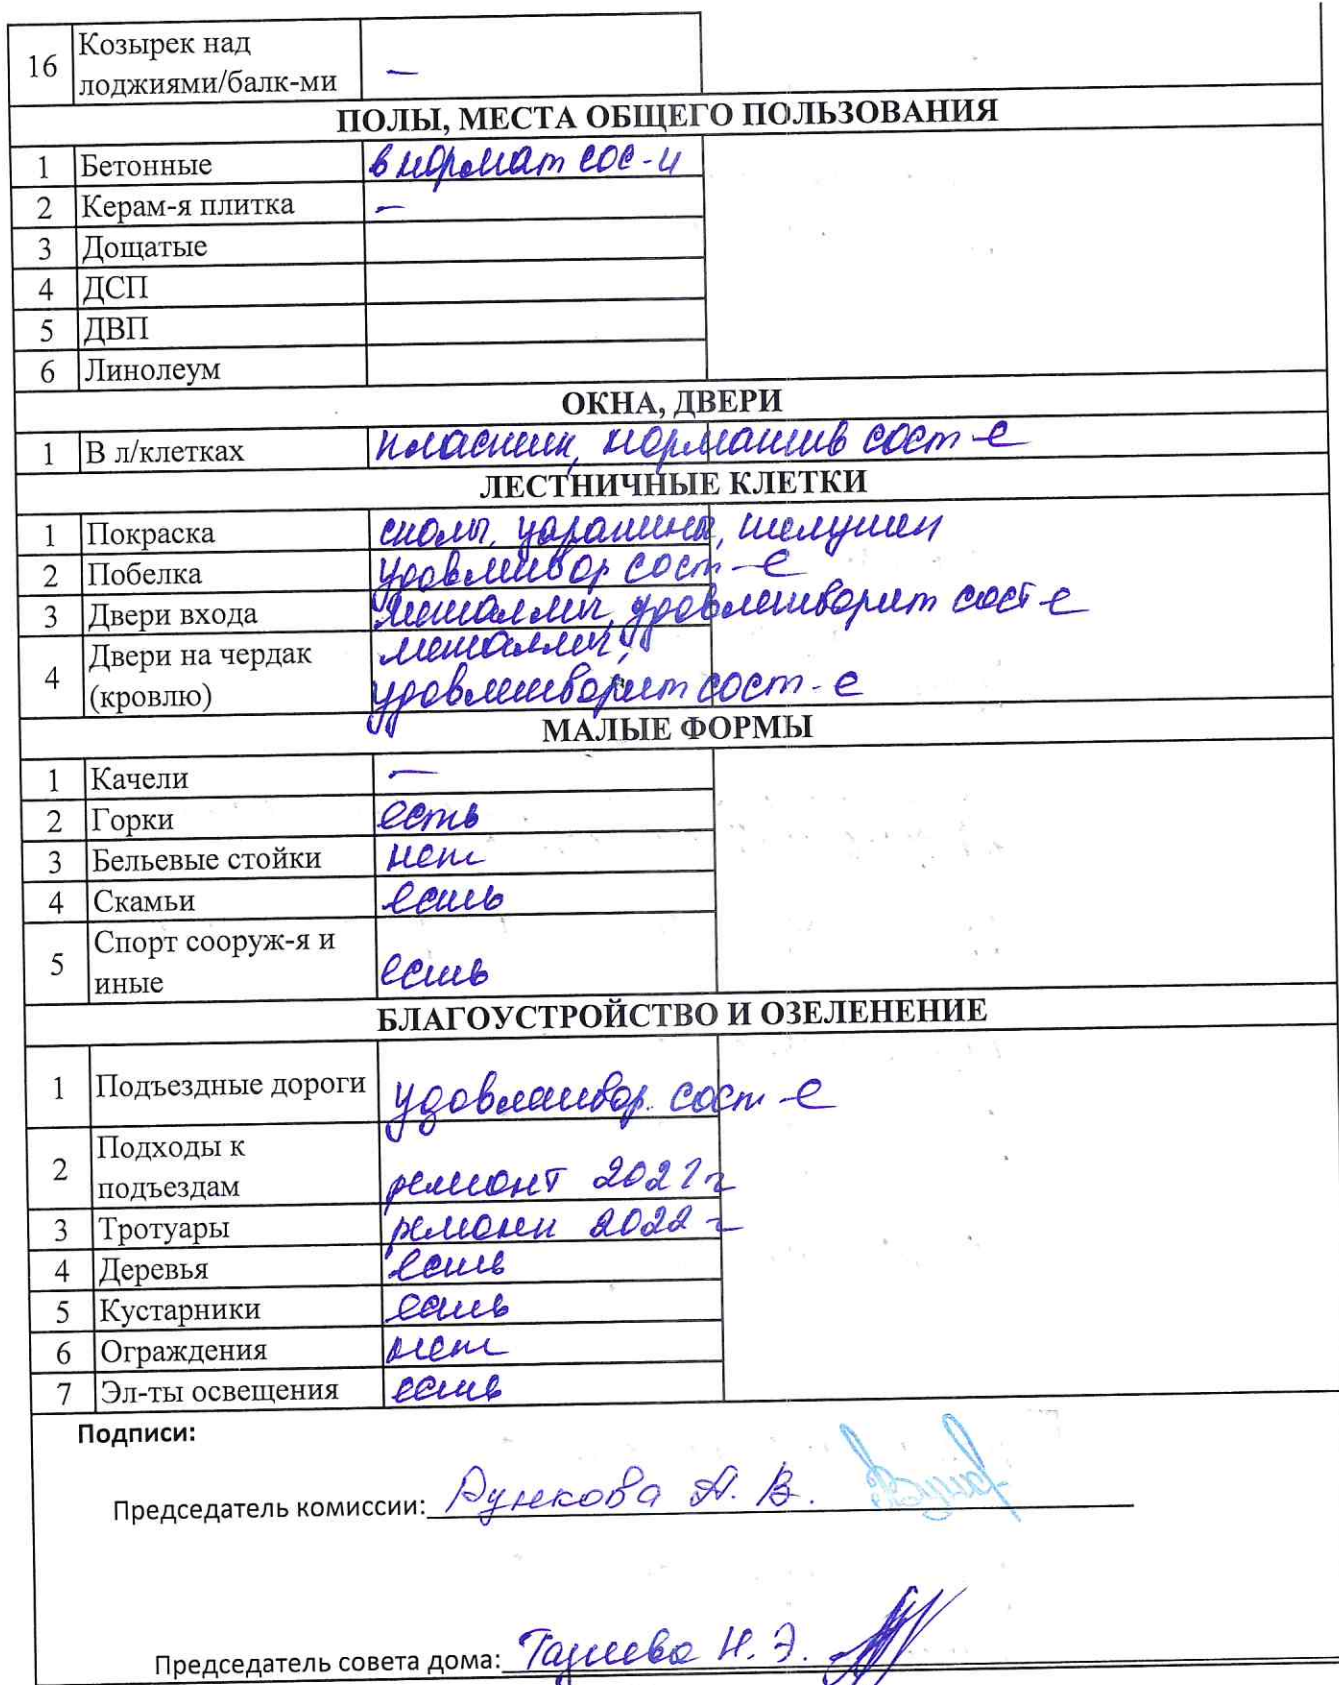 16 Козырек над
лоджиями/балк-ми —
ПОЛЫ, МЕСТА ОБЩЕГО ПОЛЬЗОВАНИЯ
1 Бетонные в нормат сос-и
2 Керам-я плитка —
3 Дощатые
4 ДСП
5 ДВП
6 Линолеум
ОКНА, ДВЕРИ
1 В л/клетках пластик, норматив сост-е
ЛЕСТНИЧНЫЕ КЛЕТКИ
1 Покраска сколы, царапины, шелушен
2 Побелка удовлетвор сост-е
3 Двери входа металлич, удовлетворит сост-е
4 Двери на чердак металлич,
(кровлю) удовлетворит сост-е
МАЛЫЕ ФОРМЫ
1 Качели —
2 Горки есть
3 Бельевые стойки нет
4 Скамьи есть
5 Спорт сооруж-я и
иные есть
БЛАГОУСТРОЙСТВО И ОЗЕЛЕНЕНИЕ
1 Подъездные дороги удовлетвор. сост-е
2 Подходы к
подъездам ремонт г
3 Тротуары ремонт 2022 г
4 Деревья есть
5 Кустарники есть
6 Ограждения нет
7 Эл-ты освещения есть
Подписи:
Председатель комиссии: Рункова А. В.
Председатель совета дома: Н. Э.